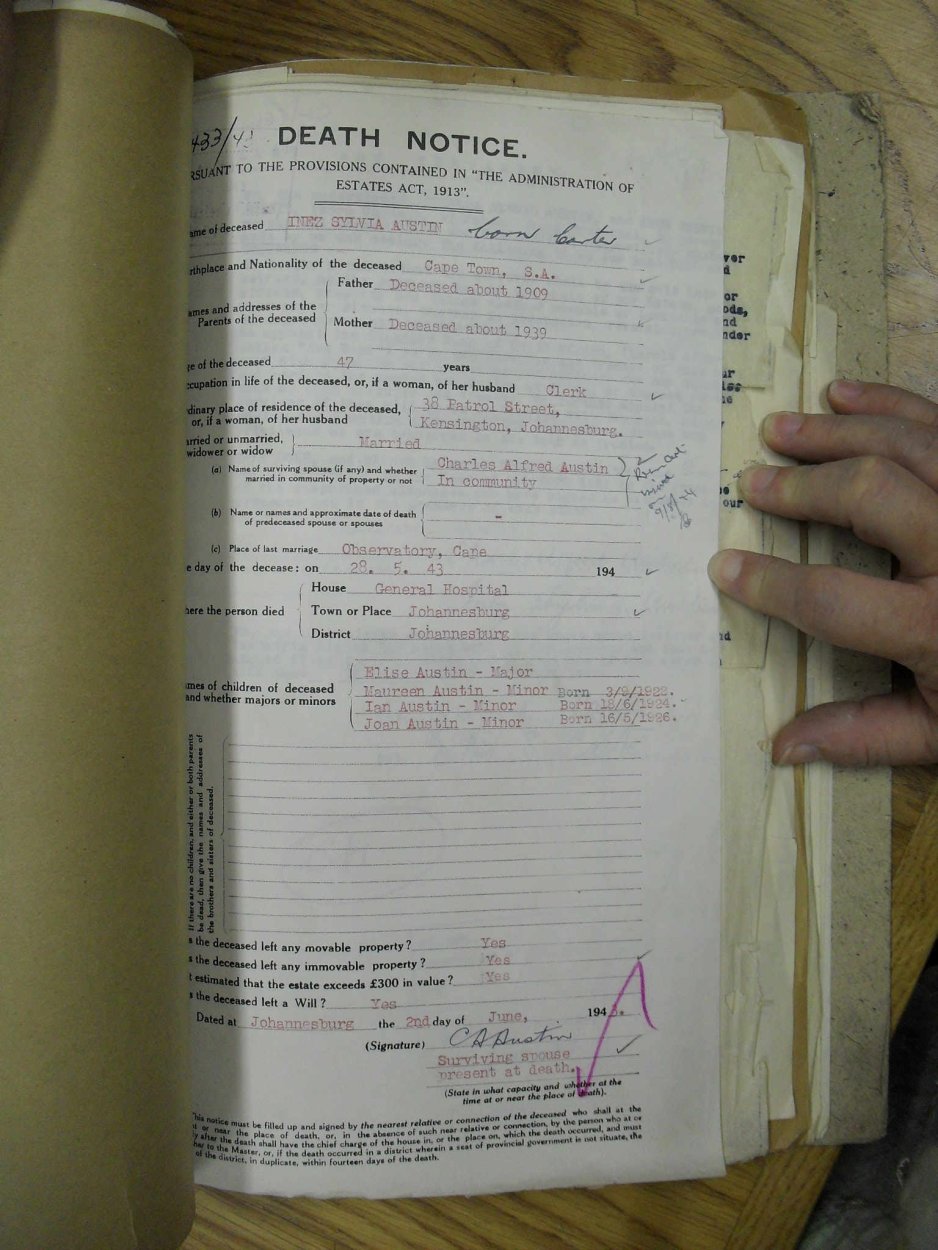 433/43 DEATH NOTICE.
RSUANT TO THE PROVISIONS CONTAINED IN "THE ADMINISTRATION OF
ESTATES ACT, 1913".
ame of deceased INEZ SYLVIA AUSTIN born Carter
rthplace and Nationality of the deceased Cape Town, S.A.
ames and addresses of the Parents of the deceased
Father Deceased about 1909
Mother Deceased about 1939
ge of the deceased 47 years
ccupation in life of the deceased, or, if a woman, of her husband Clerk
dinary place of residence of the deceased, 38 Patrol Street,
or, if a woman, of her husband Kensington, Johannesburg.
arried or unmarried, widower or widow Married
(a) Name of surviving spouse (if any) and whether Charles Alfred Austin
married in community of property or not In community
(b) Name or names and approximate date of death
of predeceased spouse or spouses -
(c) Place of last marriage Observatory, Cape
e day of the decease: on 28. 5. 43 194
House General Hospital
here the person died Town or Place Johannesburg
District Johannesburg
Elise Austin - Major
mes of children of deceased Maureen Austin - Minor Born 3/9/1922.
and whether majors or minors Ian Austin - Minor Born 18/6/1924.
Joan Austin - Minor Born 16/5/1926.
If there are no children, and either or both parents
be dead, then give the names and addresses of
the brothers and sisters of deceased.
s the deceased left any movable property? Yes
s the deceased left any immovable property? Yes
t estimated that the estate exceeds £300 in value? Yes
s the deceased left a Will? Yes
Dated at Johannesburg the 2nd day of June, 1943.
(Signature) C A Austin
Surviving spouse
present at death.
(State in what capacity and whether at the
time at or near the place of death).
his notice must be filled up and signed by the nearest relative or connection of the deceased who shall at the
t or near the place of death, or, in the absence of such near relative or connection, by the person who at or
y after the death shall have the chief charge of the house in, or the place on, which the death occurred, and must
her to the Master, or, if the death occurred in a district wherein a seat of provincial government is not situate, the
of the district, in duplicate, within fourteen days of the death.